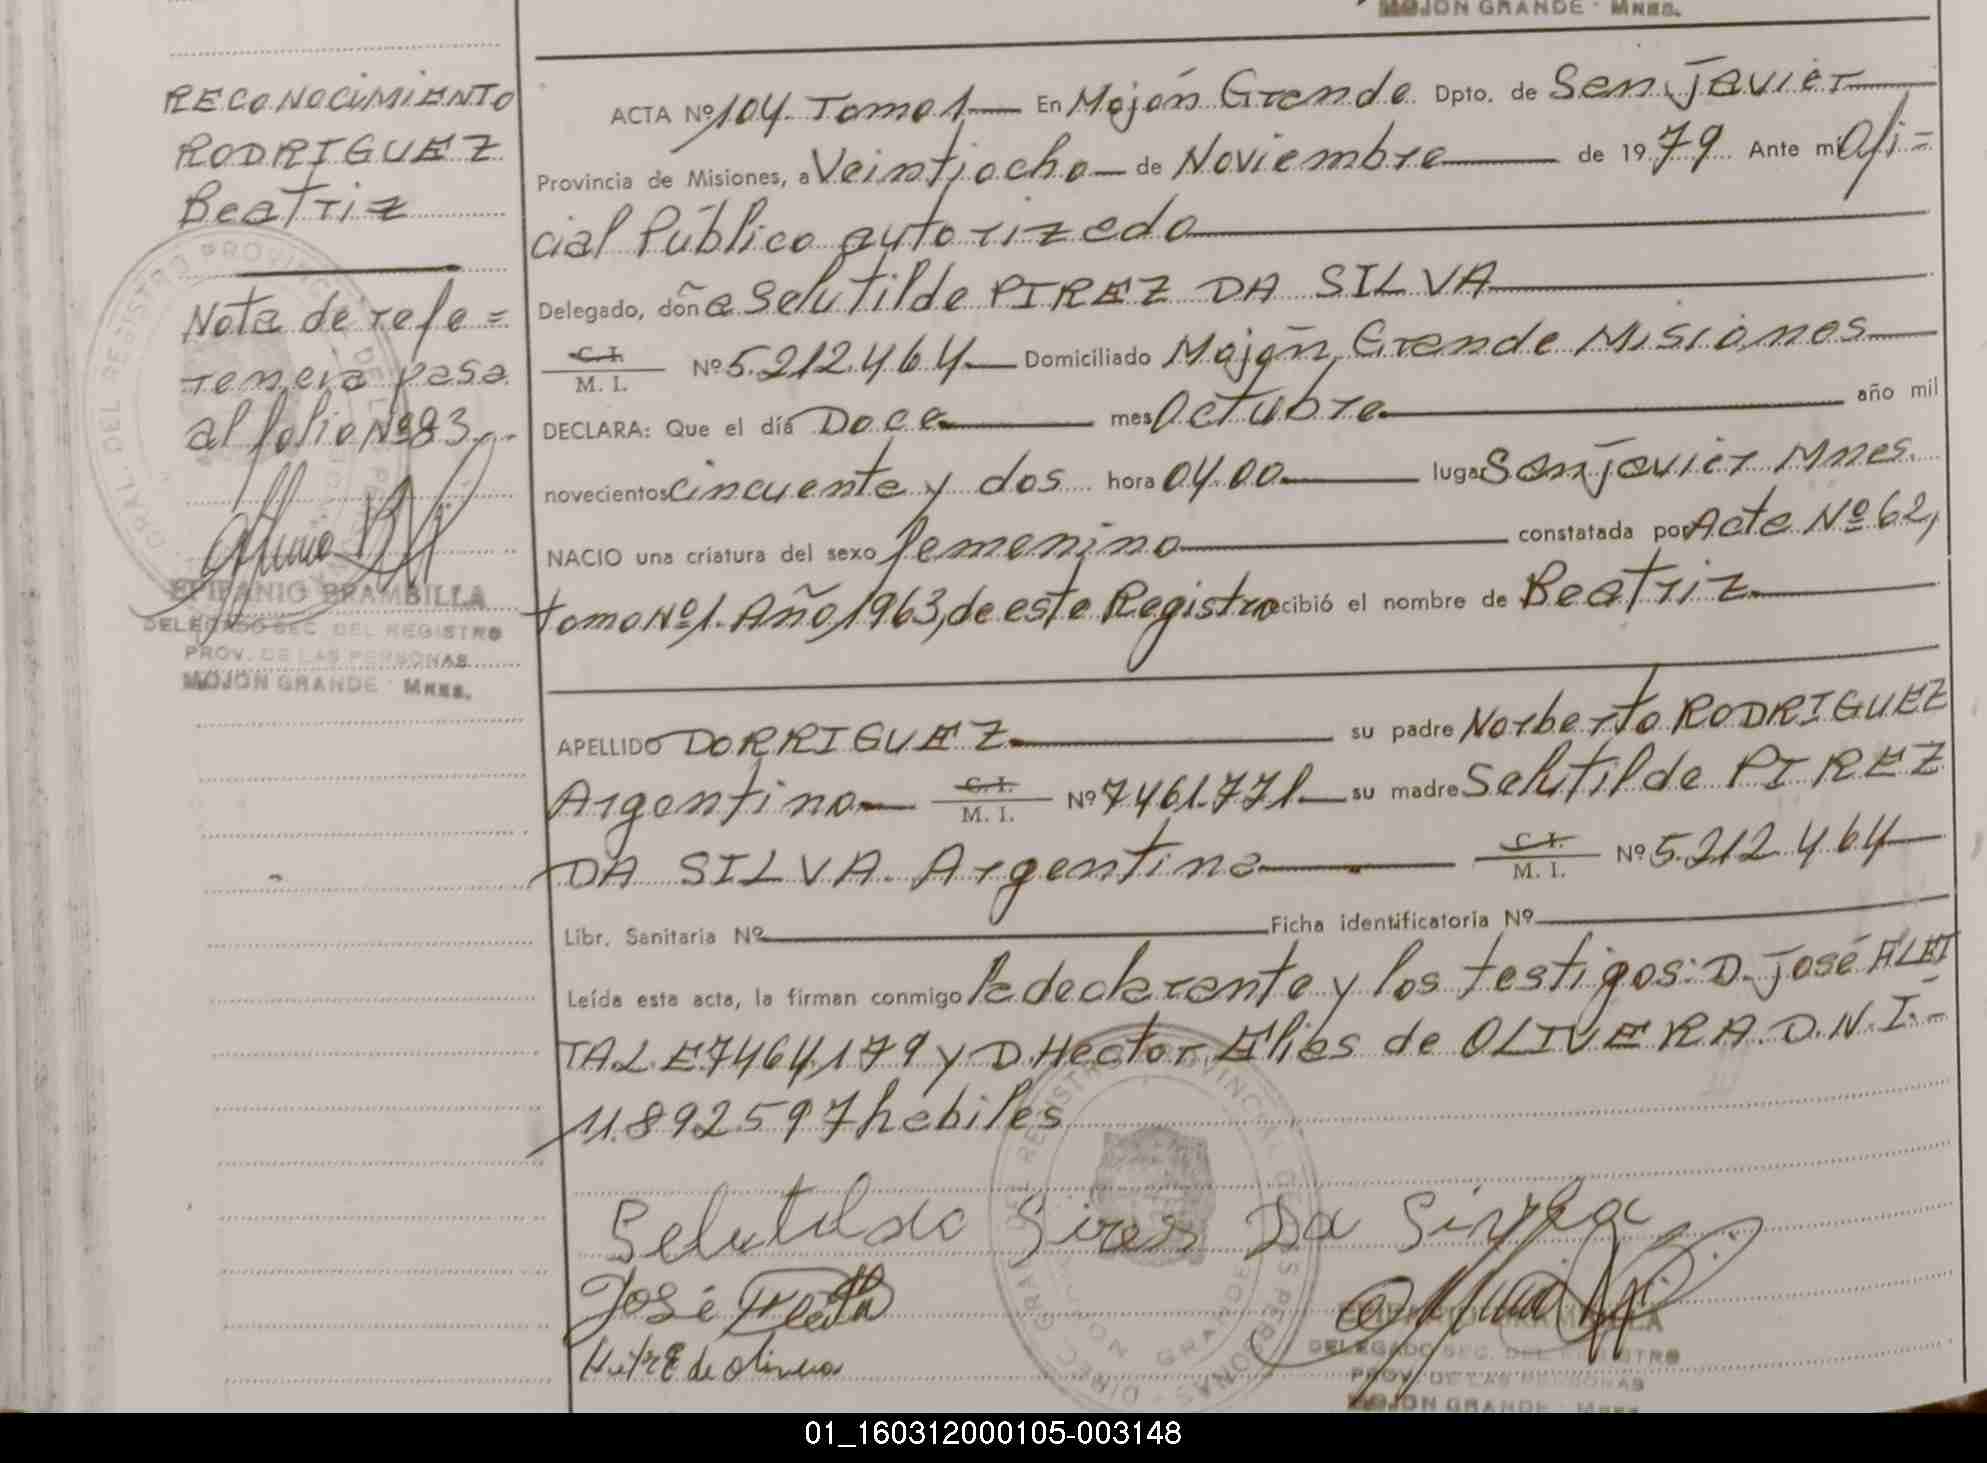 MOJON GRANDE - MNES.
RECONOCIMIENTO
RODRIGUEZ
Beatriz
Nota de refe =
rencia pasa
al folio Nº 83.
EPIFANIO BRAMBILLA
DELEGADO SEC. DEL REGISTRO
PROV. DE LAS PERSONAS
MOJON GRANDE - MNES.
ACTA Nº 104. Tomo 1 En Mojón Grande Dpto. de San Javier
Provincia de Misiones, a Veintiocho de Noviembre de 1979 Ante mi Ofi =
cial Público autorizado
Delegado, doña Selutilde PIREZ DA SILVA
C. I.
M. I. Nº 5.212.464 Domiciliado Mojón Grande Misiones
DECLARA: Que el día Doce mes Octubre año mil
novecientos cincuenta y dos hora 04.00 lugar San Javier Mnes.
NACIO una criatura del sexo femenino constatada por Acta Nº 62,
tomo Nº 1. Año 1963, de este Registro recibió el nombre de Beatriz
APELLIDO DORRIGUEZ su padre Norberto RODRIGUEZ
Argentino C. I. M. I. Nº 7461.771 su madre Selutilde PIREZ
DA SILVA. Argentina C. I. M. I. Nº 5.212.464
Libr. Sanitaria Nº Ficha identificatoria Nº
Leída esta acta, la firman conmigo la declarante y los testigos: D. José FLEI
TA L.E 7464.179 y D. Hector Elías de OLIVERA. D.N.I.-
11.892.597 hábiles
Selutildo Sires Da Sirva
José Fleita
de Olivera
DIREC. GRAL. DEL REGISTRO PROVINCIAL DE LAS PERSONAS
MOJON GRANDE
EPIFANIO BRAMBILLA
DELEGADO SEC. DEL REGISTRO
PROV. DE LAS PERSONAS
MOJON GRANDE - MNES.
01_160312000105-003148